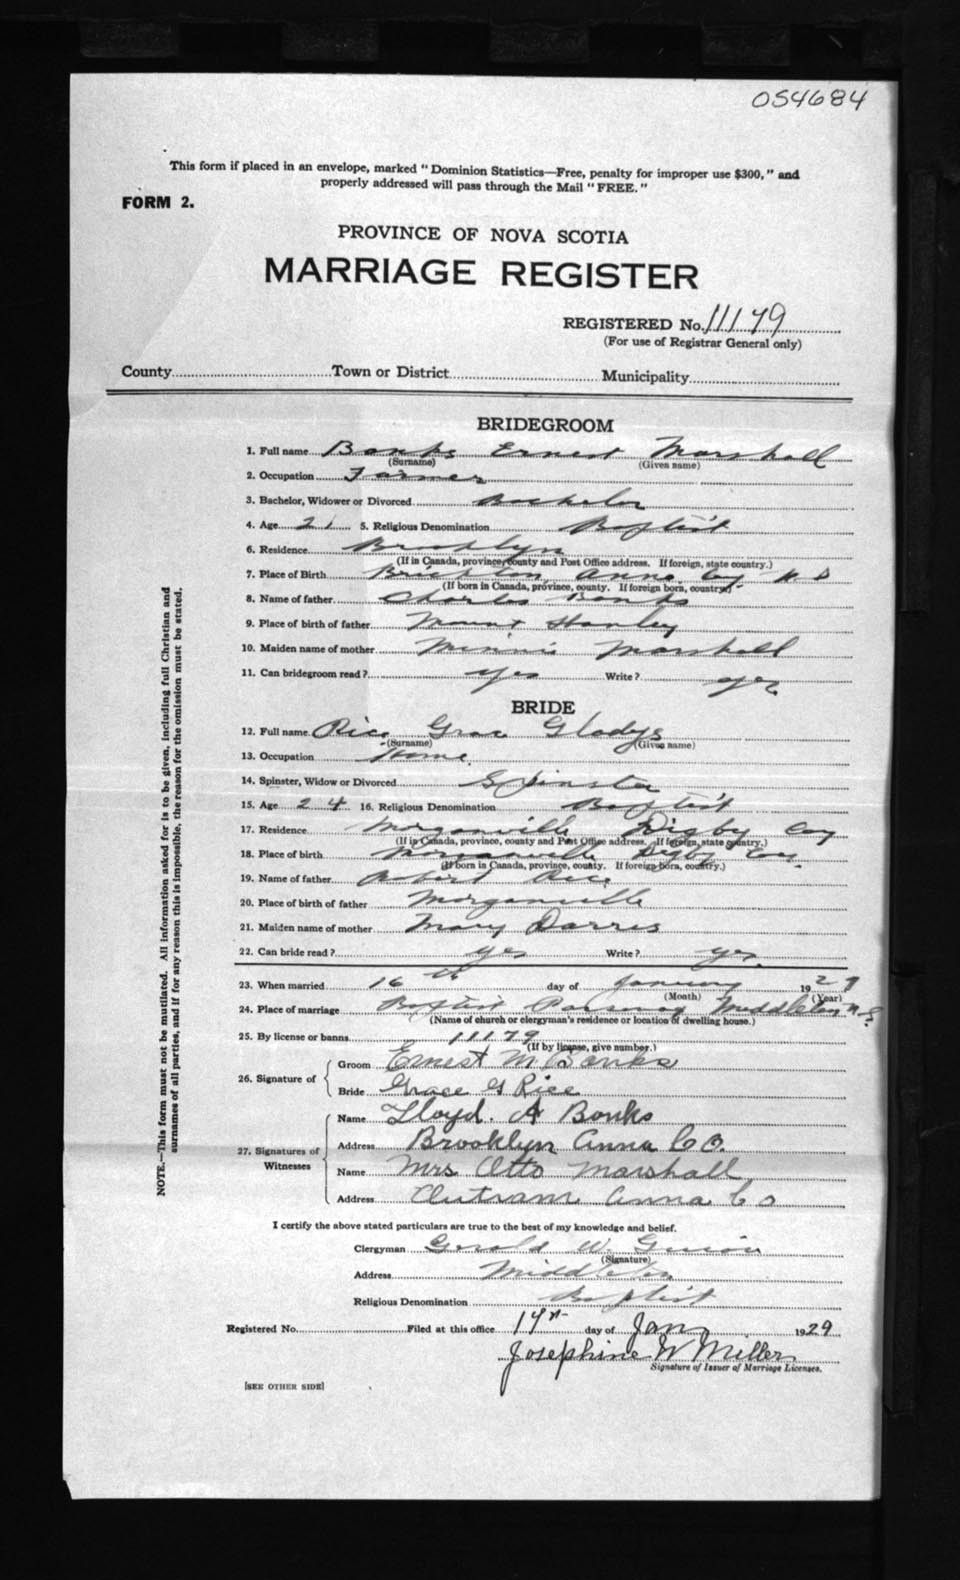 054684
This form if placed in an envelope, marked "Dominion Statistics—Free, penalty for improper use $300," and
properly addressed will pass through the Mail "FREE."
FORM 2.
PROVINCE OF NOVA SCOTIA
MARRIAGE REGISTER
REGISTERED No. 11179
(For use of Registrar General only)
County Town or District Municipality
BRIDEGROOM
1. Full name Banks Ernest Marshall
(Surname) (Given name)
2. Occupation Farmer
3. Bachelor, Widower or Divorced Bachelor
4. Age 21 5. Religious Denomination Baptist
6. Residence Brooklyn
(If in Canada, province, county and Post Office address. If foreign, state country.)
7. Place of Birth Brickton Anna Coy N S
(If born in Canada, province, county. If foreign born, country.)
8. Name of father Charles Banks
9. Place of birth of father Mount Hanley
10. Maiden name of mother Minnie Marshall
11. Can bridegroom read? yes Write? yes
BRIDE
12. Full name Rice Grace Gladys
(Surname) (Given name)
13. Occupation Home
14. Spinster, Widow or Divorced Spinster
15. Age 24 16. Religious Denomination Baptist
17. Residence Morganville Digby Coy
(If in Canada, province, county and Post Office address. If foreign, state country.)
18. Place of birth Morganville Digby Coy
(If born in Canada, province, county. If foreign born, country.)
19. Name of father Robert Rice
20. Place of birth of father Morganville
21. Maiden name of mother Mary Darres
22. Can bride read? yes Write? yes
23. When married 16th day of January 1929
(Month) (Year)
24. Place of marriage Baptist Parsonage Middleton N.S.
(Name of church or clergyman's residence or location of dwelling house.)
25. By license or banns 11179
(If by license, give number.)
26. Signature of Groom Ernest M Banks
Bride Grace G Rice
27. Signatures of Witnesses Name Lloyd. A Banks
Address Brooklyn Anna Co.
Name Mrs Otto Marshall
Address Outram Anna Co
I certify the above stated particulars are true to the best of my knowledge and belief.
Clergyman Gerald W
(Signature)
Address Middleton
Religious Denomination Baptist
Registered No. Filed at this office day of Jan 1929
Josephine W Miller
Signature of Issuer of Marriage Licenses.
[SEE OTHER SIDE]
NOTE.—This form must not be mutilated. All information asked for is to be given, including full Christian and
surnames of all parties, and if for any reason this is impossible, the reason for the omission must be stated.